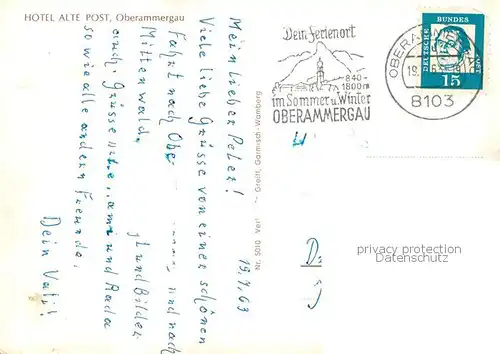 HOTEL ALTE POST, Oberammergau
Mein lieber Peter!
Viele liebe Grüsse von einer schönen
Fahrt nach Obe und nach
Mittenwald. und Bilder
auch. Grüsse und Rada
so wie alle andern Freunde.
Dein Vati!
19.7.63
Nr. 5010 Verl Greiff, Garmisch-Wamberg
Dein Ferienort
840-
1800m
im Sommer u. Winter
OBERAMMERGAU
OBERAMMERGAU
19.
8103
DEUTSCHE
BUNDES
POST
15
privacy protection
Datenschutz